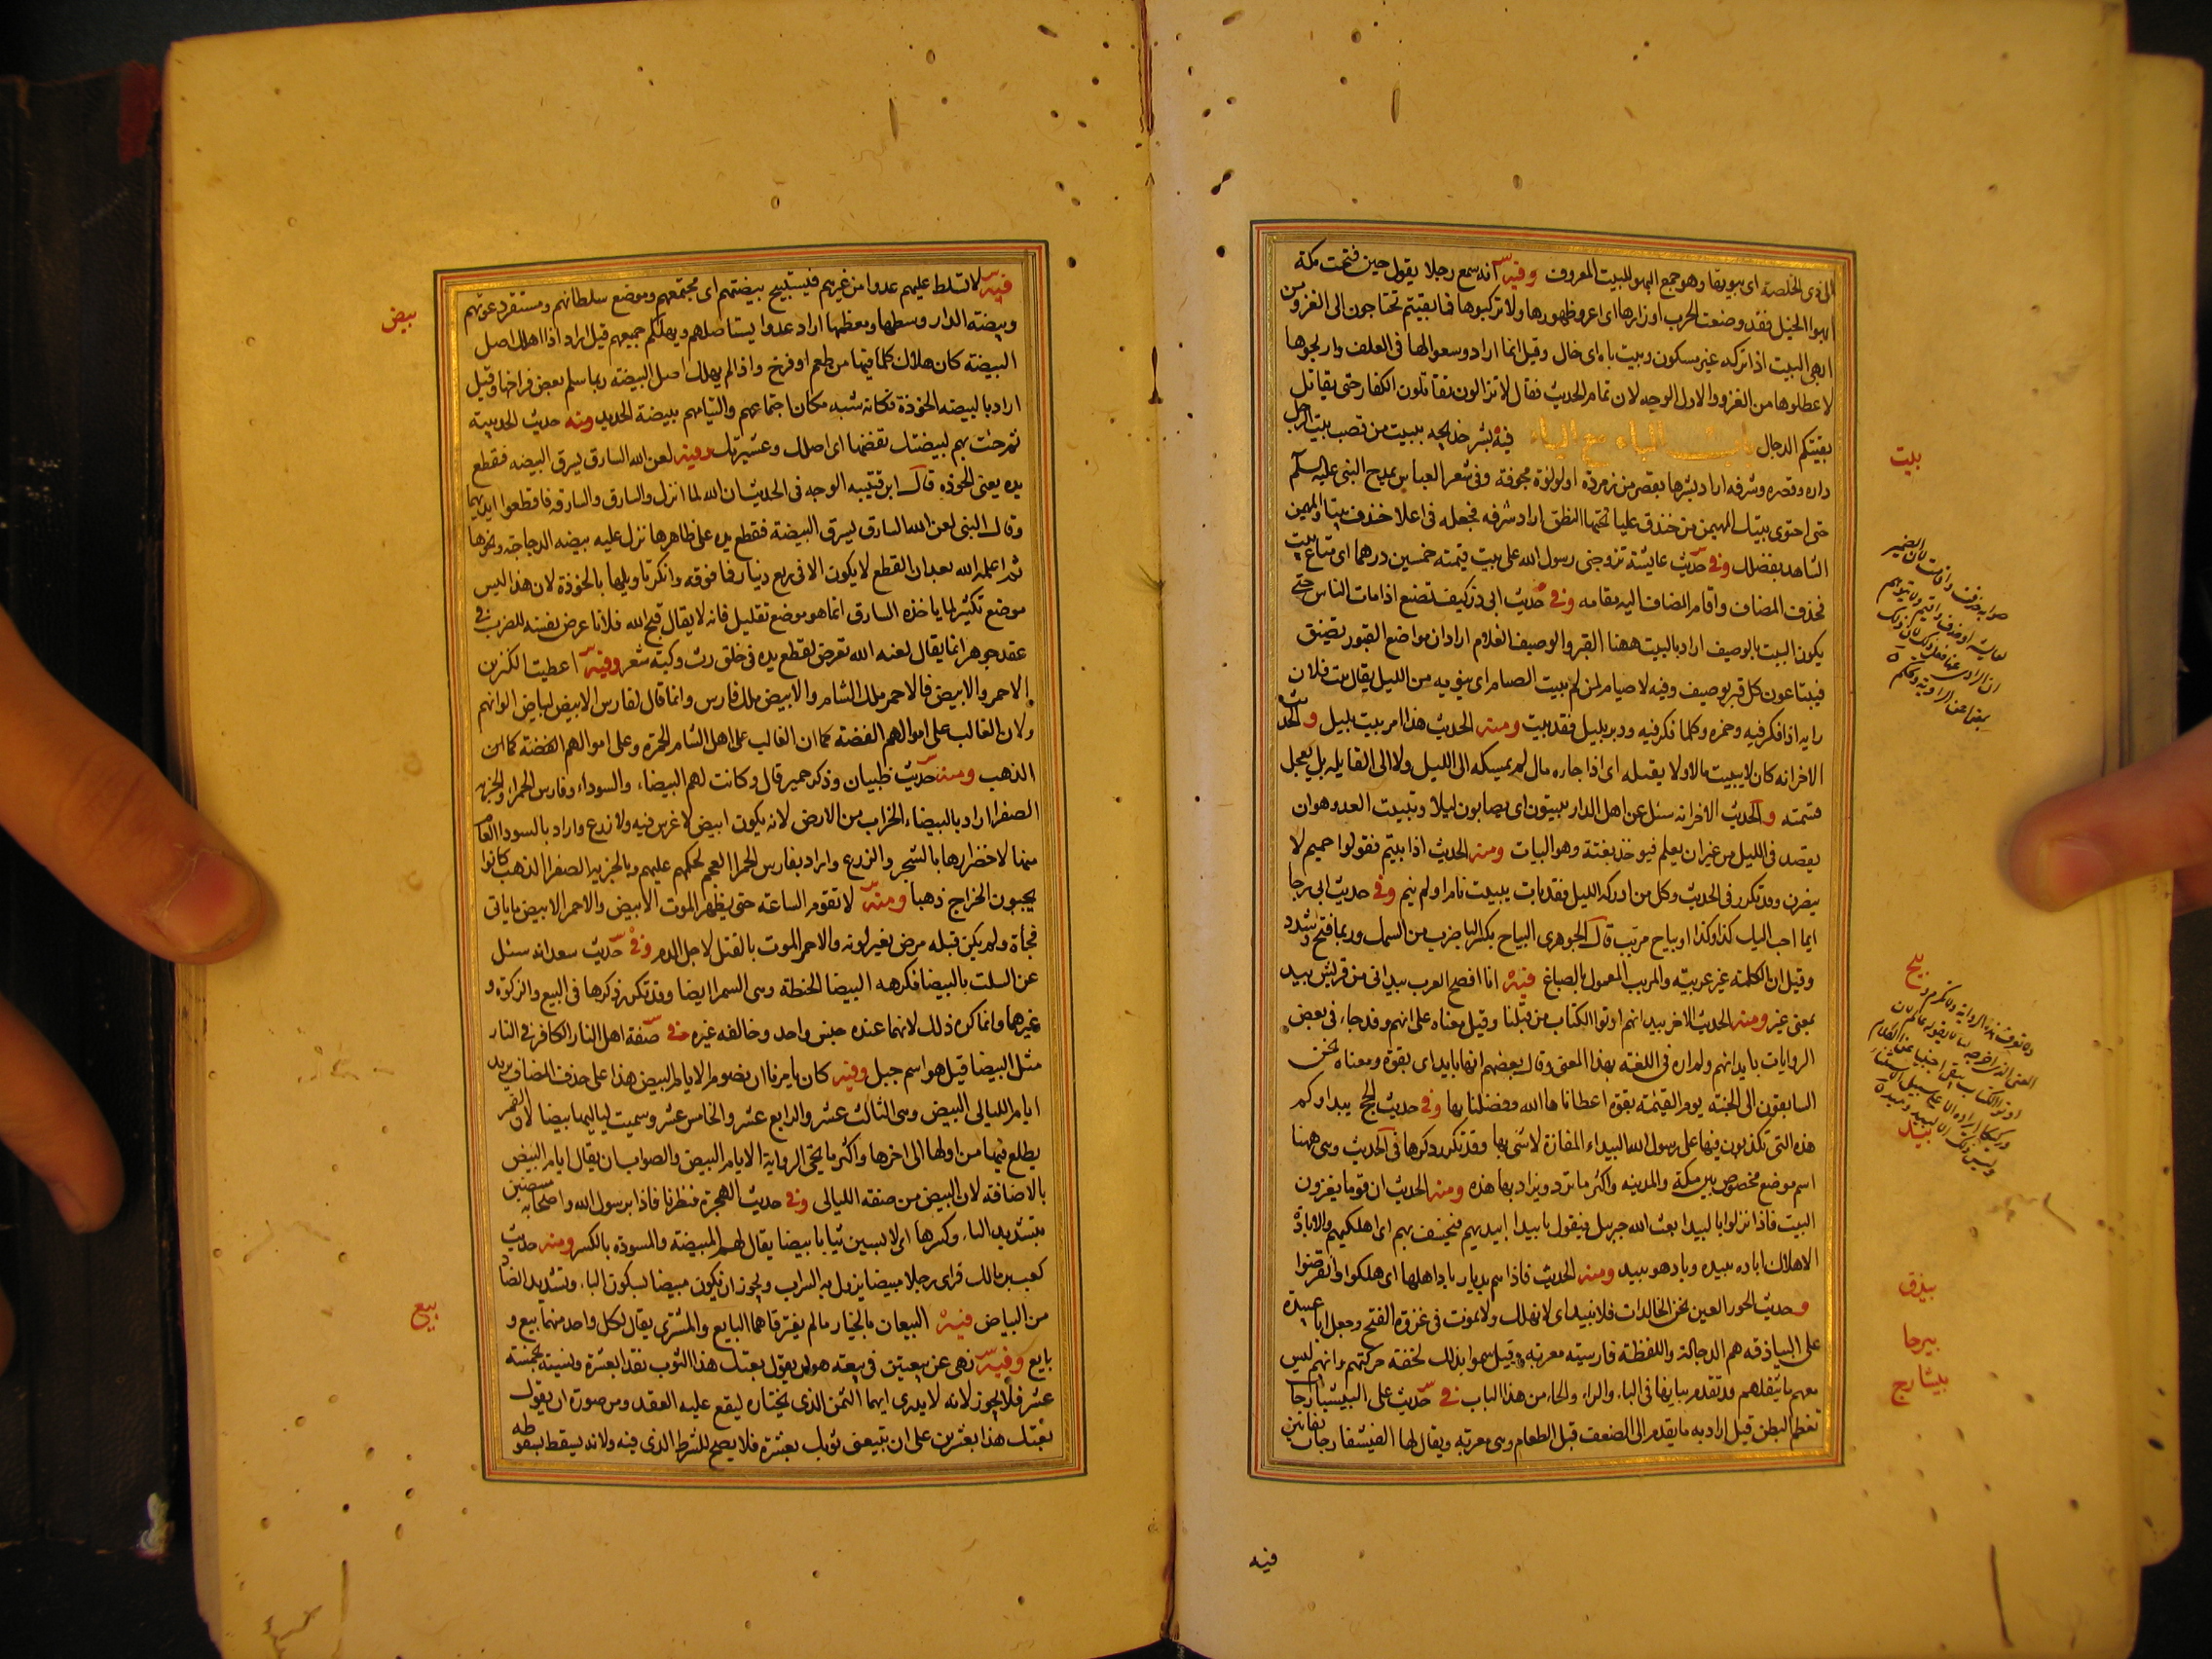 الى ذى الخلصة اى ببيوتها وهو جمع البهو للبيت المعروف وفيه انه سمع رجلا يقول حين فتحت مكة
ابهوا الخيل فقد وضعت الحرب اوزارها اى اعروا ظهورها ولا تركبوها فما بقيتم تحتاجون الى الغزو من
ابهى البيت اذا تركه غير مسكون وبيت باه اى خال وقيل انما اراد وسعوا لها فى العلف واريحوها
لا عطلوها من الغزو والاول الوجه لان تمام الحديث فقال لا تزالون تقاتلون الكفار حتى يقاتل
بقيتكم الدجال باب الباء مع الياء فيه بشر خديجه ببيت من قصب بيت الرجل
داره وقصره وشرفه اراد بشرها بقصر من زمردة او لولوة مجوفة وفى شعر العباس يمدح النبى عليه السلم
حتى احتوى بيتك المهيمن من خندف عليا تحتها النطق اراد شرفه فجعله فى اعلا خندف بيتا والمهيمن
الشاهد بفضلك وفى حديث عايشة تزوجنى رسول الله على بيت قيمته خمسين درهما اى متاع بيت
فحذف المضاف واقام المضاف اليه مقامه وفى حديث ابى ذر كيف تصنع اذا مات الناس حتى
يكون البيت بالوصيف اراد بالبيت ههنا القبر والوصيف الغلام اراد ان مواضع القبور تضيق
فيبتاعون كل قبر بوصيف وفيه لا صيام لمن لم يبيت الصيام اى ينويه من الليل يقال بيت فلان
رايه اذا فكر فيه وخمره وكلما فكر فيه ودبر بليل فقد بيت ومنه الحديث هذا امر بيت بليل والحديث
الاخر انه كان لا يبيت مالا ولا يقيله اى اذا جاءه مال لم يمسكه الى الليل ولا الى القايله بل يعجل
قسمته والحديث الاخر انه سئل عن اهل الدار يبيتون اى يصابون ليلا وتبييت العدو هو ان
يقصد فى الليل من غير ان يعلم فيوخذ بغتة وهو البيات ومنه الحديث اذا بيتم فقولوا حميم لا
ينصرن وقد تكرر فى الحديث وكل من ادركه الليل فقد بات يبيت نام او لم ينم وفى حديث ابى رجا
ايما احب اليك كذا وكذا او بياح مربب قال الجوهرى البياح بكسر البا ضرب من السمك وربما فتح وشدد
وقيل ان الكلمة غير عربية والمربب المعمول بالصباغ فيه انا افصح العرب بيد انى من قريش بيد
بمعنى غير ومنه الحديث الاخر بيد انهم اوتوا الكتاب من قبلنا وقيل معناه على انهم وقد جاء فى بعض
الروايات بايد انهم ولم اره فى اللغة بهذا المعنى وقال بعضهم انها بايد اى بقوة ومعناه نحن
السابقون الى الجنة يوم القيمة بقوة اعطاناها الله وفضلنا بها وفى حديث الحج بيداوكم
هذه التى تكذبون فيها على رسول الله البيداء المفازة لا شى بها وقد تكرر ذكرها فى الحديث وهى ههنا
اسم موضع مخصوص بين مكة والمدينة واكثر ما ترد ويراد بها هذه ومنه الحديث ان قوما يغزون
البيت فاذا نزلوا بالبيدا بعث الله جبريل فيقول يا بيدا ابيديهم فيخسف بهم اى اهلكيهم والابادة
الاهلاك اباده يبيده وباد هو يبيد ومنه الحديث فاذا هم بديار باد اهلها اى هلكوا وانقرضوا
وحديث الحور العين نحن الخالدات فلا نبيد اى لا نهلك ولا نموت فى غزوة الفتح وجعل ابا عبيدة
على البياذقه هم الرجالة واللفظة فارسية معربة وقيل سموا بذلك لخفة حركتهم وانهم ليس
معهم ما يثقلهم قد تقدم بيانها فى الباء والراء والحاء من هذا الباب فى حديث على البيشيارجات
تعظم البطن قيل اراد به ما يقدم الى الضيف قبل الطعام وهى معربة ويقال لها الفيشفارجات بفائين
بيت
بيح
بيد
بيذق
بيرحا
بيشارج
فيه
فيه لا تسلط عليهم عدوا من غيرهم فيستبيح بيضتهم اى مجتمعهم وموضع سلطانهم ومستقر دعوتهم
وبيضة الدار وسطها ومعظمها اراد عدوا يستاصلهم ويهلكهم جميعهم قيل اراد اذا اهلك اصل
البيضة كان هلاك كلما فيها من طعم او فرخ واذا لم يهلك اصل البيضة ربما سلم بعض فراخها وقيل
اراد بالبيضه الخوذة فكانه شبه مكان اجتماعهم والتيامهم ببيضة الحديد ومنه حديث الحديبية
ثم جئت بهم لبيضتك تفضها اى اصلك وعشيرتك وفيه لعن الله السارق يسرق البيضه فقطع
يده يعنى الخوذه قال ابن قتيبه الوجه فى الحديث ان الله لما انزل والسارق والسارقه فاقطعوا ايديهما
وقال النبى لعن الله السارق يسرق البيضة فقطع يده على ظاهر ما نزل عليه بيضه الدجاجة ونحوها
ثم اعلمه الله بعد ان القطع لا يكون الا فى ربع دينار فما فوقه وانكر تاويلها بالخوذة لان هذا ليس
موضع تكثير لما ياخذه السارق انما هو موضع تقليل فانه لا يقال قبح الله فلانا عرض نفسه للضرب فى
عقد جوهر انما يقال لعنه الله تعرض لقطع يده فى خلق رث وكبة شعر وفيه اعطيت الكنزين
الاحمر والابيض فالاحمر ملك الشام والابيض ملك فارس وانما قال لفارس الابيض لبياض الوانهم
ولان الغالب على اموالهم الفضة كما ان الغالب على اهل الشام الحمرة وعلى اموالهم الفضة كما ان
الذهب ومنه حديث ظبيان وذكر حمير قال وكانت لهم البيضاء والسوداء وفارس الحمراء والجزية
الصفرا اراد بالبيضاء الخراب من الارض لانه يكون ابيض لا غرس فيه ولا زرع واراد بالسودا العامر
منها لاخضرارها بالشجر والزرع واراد بفارس الحمرا العجم لحكمهم عليهم وبالجزية الصفرا الذهب كانوا
يجبون الخراج ذهبا ومنه لا تقوم الساعة حتى يظهر الموت الابيض والاحمر الابيض ما ياتى
فجأة ولم يكن قبله مرض يغير لونه والاحمر الموت بالقتل لاجل الدم وفى حديث سعد انه سئل
عن السلت بالبيضا فكرهه البيضا الحنطة وهى السمرا ايضا وقد تكرر ذكرها فى البيع والزكوة و
غيرهما وانما كره ذلك لانهما عنده جنس واحد وخالفه غيره فى صفة اهل النار الكافر فى النار
مثل البيضا قيل هو اسم جبل وفيه كان يامرنا ان نصوم الايام البيض هذا على حذف المضاف يريد
ايام الليالى البيض وهى الثالث عشر والرابع عشر والخامس عشر وسميت لياليها بيضا لان القمر
يطلع فيها من اولها الى اخرها واكثر ما يجى الرواية الايام البيض والصواب ان يقال ايام البيض
بالاضافة لان البيض من صفة الليالى وفى حديث الهجرة فنظرنا فاذا برسول الله واصحابه مبيضين
بتشديد الياء وكسرها اى لابسين ثيابا بيضا يقال لهم المبيضة والمسودة بالكسر ومنه حديث
كعب بن مالك فراى رجلا مبيضا يزول به السراب ويجوز ان يكون مبيضا بسكون البا وتشديد الضاد
من البياض فيه البيعان بالخيار مالم يفترقا هما البايع والمشترى يقال لكل واحد منهما بيع و
بايع وفيه نهى عن بيعتين فى بيعة هو ان يقول بعتك هذا الثوب نقدا بعشرة ونسيئة بخمسة
عشر فلا يجوز لانه لا يدرى ايهما الثمن الذى يختاره ليقع عليه العقد ومن صورة ان يقول
بعتك هذا بعشرين على ان تبيعنى ثوبك بعشرة فلا يصح للشرط الذى فيه ولانه يسقط بسقوطه
بيض
بيع